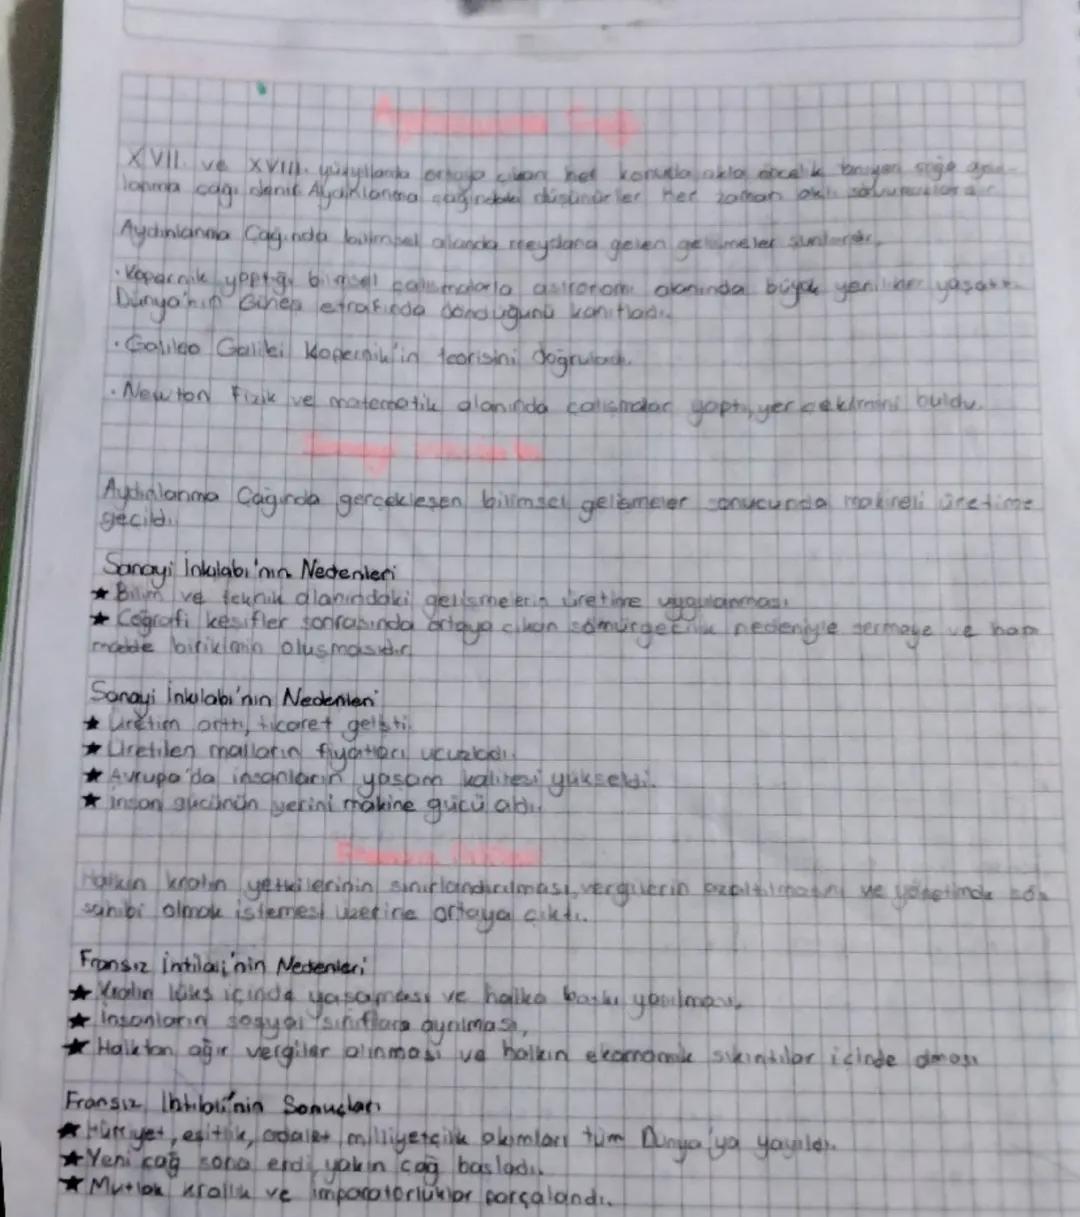 Aydınlanma Çağı
XVII. ve XVIII. yüzyıllarda ortaya çıkan her konuda akla öncelik tanıyan
lanma çağı denir. Aydıklanma çağındaki düşünürler her zaman aklı
Aydınlanma Çağında bilimsel alanda meydana gelen gelişmeler şunlardır.
· Kopernik yaptığı bilimsel çalışmalarla astronomi alanında büyük yenilikler
Dünya'nın Güneş etrafında döndüğünü kanıtladı.
· Galileo Galilei Kopernik'in teorisini doğruladı.
· Newton fizik ve matematik alanında çalışmalar yaptı, yer çekimini buldu.
Aydınlanma Çağında gerçekleşen bilimsel gelişmeler sonucunda makineli üretime
geçildi.
Sanayi İnkılabı'nın Nedenleri
★ Bilim ve teknik alanındaki gelişmelerin üretime uygulanması
★ Coğrafi keşifler sonrasında ortaya çıkan sömürgecilik nedeniyle sermaye ve ham
madde birikimin oluşmasıdır
Sanayi İnkılabı'nın Nedenleri
★ Üretim arttı, ticaret gelişti.
★ Üretilen malların fiyatları ucuzladı.
★ Avrupa'da insanların yaşam kalitesi yükseldi.
★ İnsan gücünün yerini makine gücü aldı.
Halkın kralın yetkilerinin sınırlandırılması, vergilerin azaltılmasını ve yönetimde söz
sahibi olmak istemesi üzerine ortaya çıktı.
Fransız İntilali'nin Nedenleri
★ Kralın lüks içinde yaşaması ve halka baskı yapılması,
★ İnsanların sosyal sınıflara ayrılması,
★ Halktan ağır vergiler alınması ve halkın ekonomik sıkıntılar içinde olması
Fransız İhtilali'nin Sonuçları
★ Hürriyet, eşitlik, adalet, milliyetçilik akımları tüm Dünya'ya yayıldı.
★ Yeni çağ sona erdi, yakın çağ başladı.
★ Mutlak krallık ve imparatorluklar parçalandı.